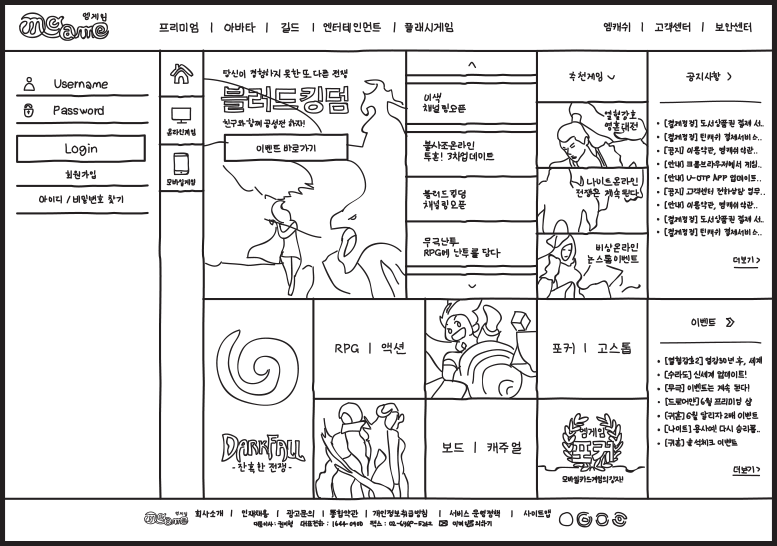 mgame 엠게임
프리미엄 | 아바타 | 길드 | 엔터테인먼트 | 플래시게임
엠캐쉬 | 고객센터 | 보안센터
Username
Password
Login
회원가입
아이디 / 비밀번호 찾기
온라인게임
모바일게임
당신이 경험하지 못한 또 다른 전쟁
블러드킹덤
친구와 함께 공성전 하자!
이벤트 바로가기
이색
채널링오픈
불사조온라인
투혼! 3차업데이트
블러드킹덤
채널링오픈
무극난투
RPG에 난투를 담다
추천게임
열혈강호
영혼대전
나이트온라인
전쟁은 계속된다
비상온라인
논스톱이벤트
공지사항 >
• [결제정정] 도서상품권 결제 서..
• [결제정정] 틴캐쉬 결제서비스..
• [공지] 이용약관, 엠캐쉬약관..
• [안내] 크롬브라우저에서 게임..
• [안내] U-OTP APP 업데이트..
• [공지] 고객센터 전화상담 업무..
• [안내] 이용약관, 엠캐쉬약관..
• [결제정정] 도서상품권 결제 서..
• [결제정정] 틴캐쉬 결제서비스..
더보기 >
DARKFALL
- 잔혹한 전쟁 -
RPG | 액션
포커 | 고스톱
보드 | 캐주얼
엠게임
포커
모바일카드게임의강자!
이벤트
• [열혈강호2] 열강50년 후, 세계
• [수라도] 신세계 업데이트!
• [무극] 이벤트는 계속 된다!
• [드로이얀] 6월 프리미엄 샵
• [귀혼] 6월 말리자 2배 이벤트
• [나이트] 용사여! 다시 승리를..
• [귀혼] 출석체크 이벤트
더보기 >
mgame 엠게임
회사소개 | 인재채용 | 광고문의 | 통합약관 | 개인정보취급방침 | 서비스 운영정책 | 사이트맵
대표이사 : 권이형 대표전화 : 1644-0900 팩스 : 이메일문의하기